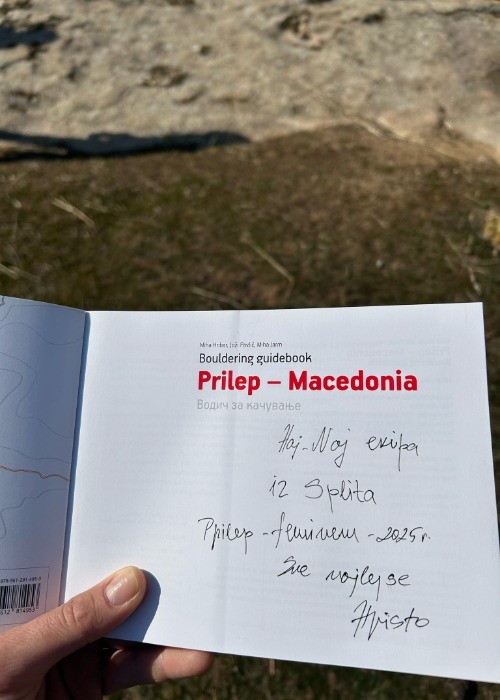 Miha Hribar, Jaši Pavlič, Miha Jarm
Bouldering guidebook
Prilep – Macedonia
Водич за качување
Haj-Noj ekipa
iz Splita
Prilep - - 2025 г.
Sve najlepse
Hristo